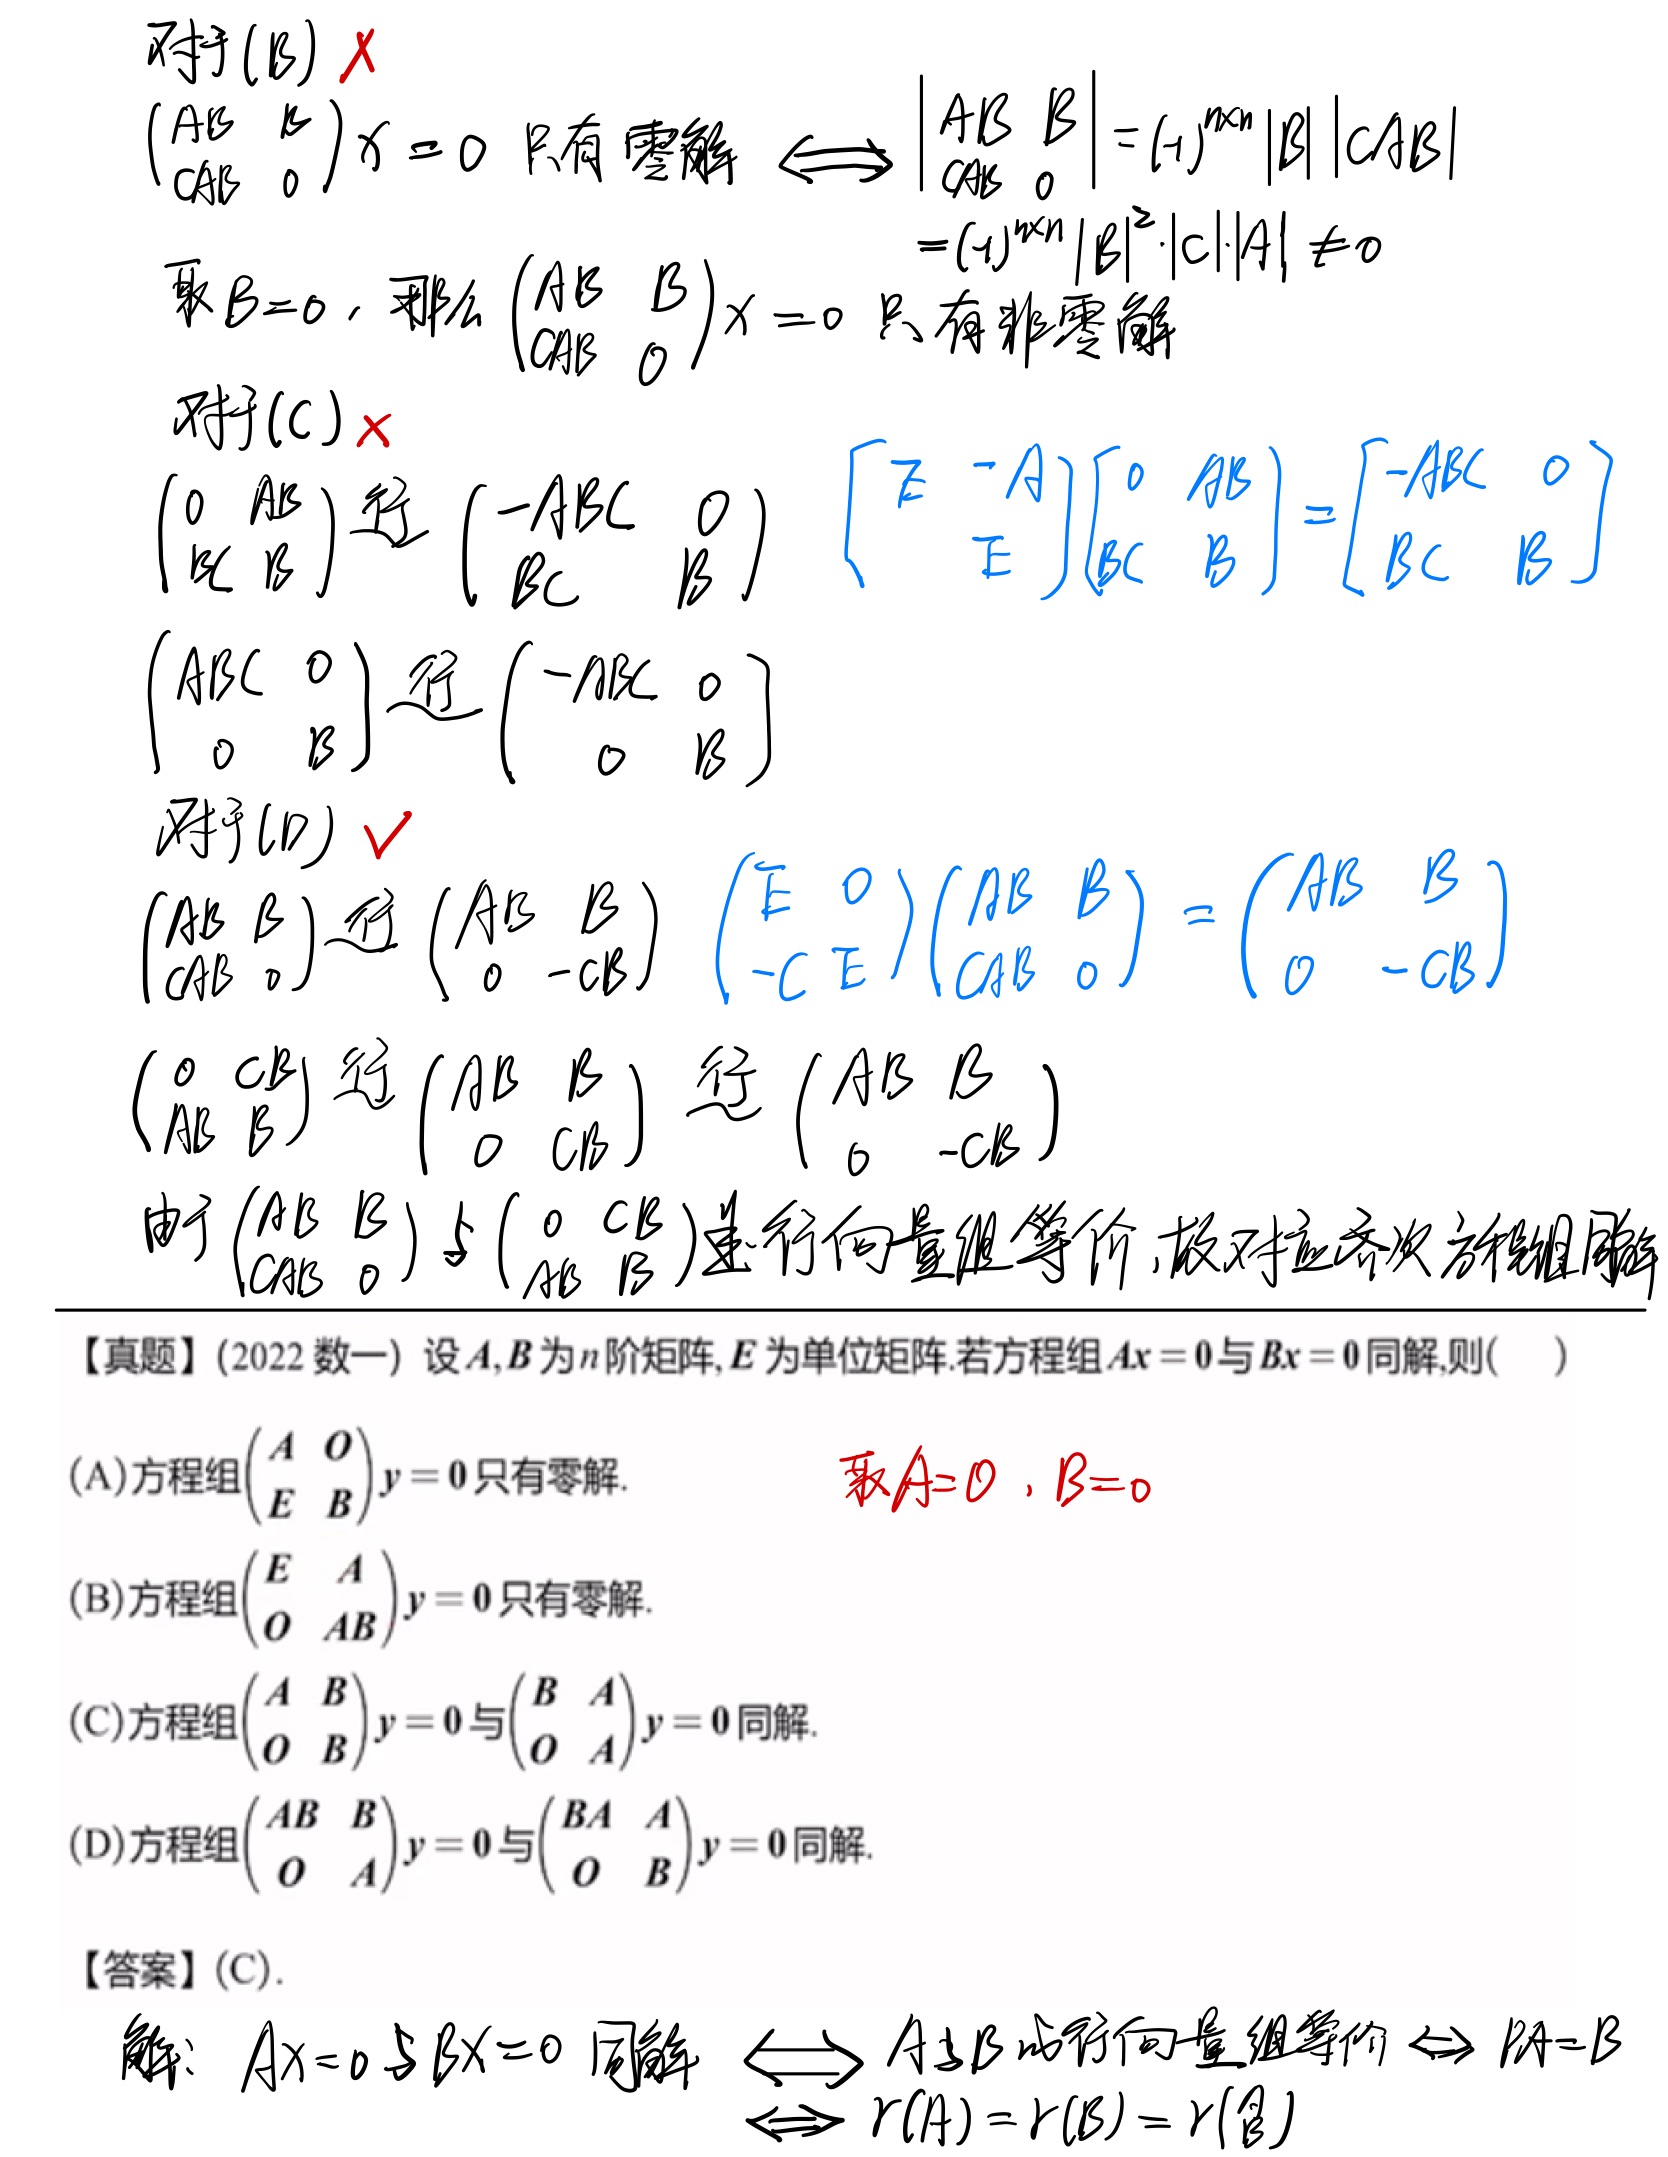 对于(B) ×
(AB B; CAB 0) x = 0 只有零解 ⟺ |AB B; CAB 0| = (-1)^{n×n} |B| |CAB|
= (-1)^{n×n} |B|²·|C|·|A| ≠ 0
取B=0, 那么 (AB B; CAB 0) x = 0 只有非零解
对于(C) ×
(0 AB; BC B) 行 (-ABC 0; BC B) [E -A; E] [0 AB; BC B] = [-ABC 0; BC B]
(ABC 0; 0 B) 行 (-ABC 0; 0 B)
对于(D) ✓
(AB B; CAB 0) 行 (AB B; 0 -CB) (E 0; -C E) (AB B; CAB 0) = (AB B; 0 -CB)
(0 CB; AB B) 行 (AB B; 0 CB) 行 (AB B; 0 -CB)
由于 (AB B; CAB 0) 与 (0 CB; AB B) 是行向量组等价,故对应齐次方程组同解
【真题】(2022 数一) 设 A,B 为 n 阶矩阵, E 为单位矩阵.若方程组 Ax = 0 与 Bx = 0 同解,则( )
(A)方程组 (A O; E B) y = 0 只有零解. 取A=0, B=0
(B)方程组 (E A; O AB) y = 0 只有零解.
(C)方程组 (A B; O B) y = 0 与 (B A; O A) y = 0 同解.
(D)方程组 (AB B; O A) y = 0 与 (BA A; O B) y = 0 同解.
【答案】(C).
解: AX=0 与 BX=0 同解 ⟺ A与B的行向量组等价 ⟺ PA=B
⟺ r(A) = r(B) = r(A; B)